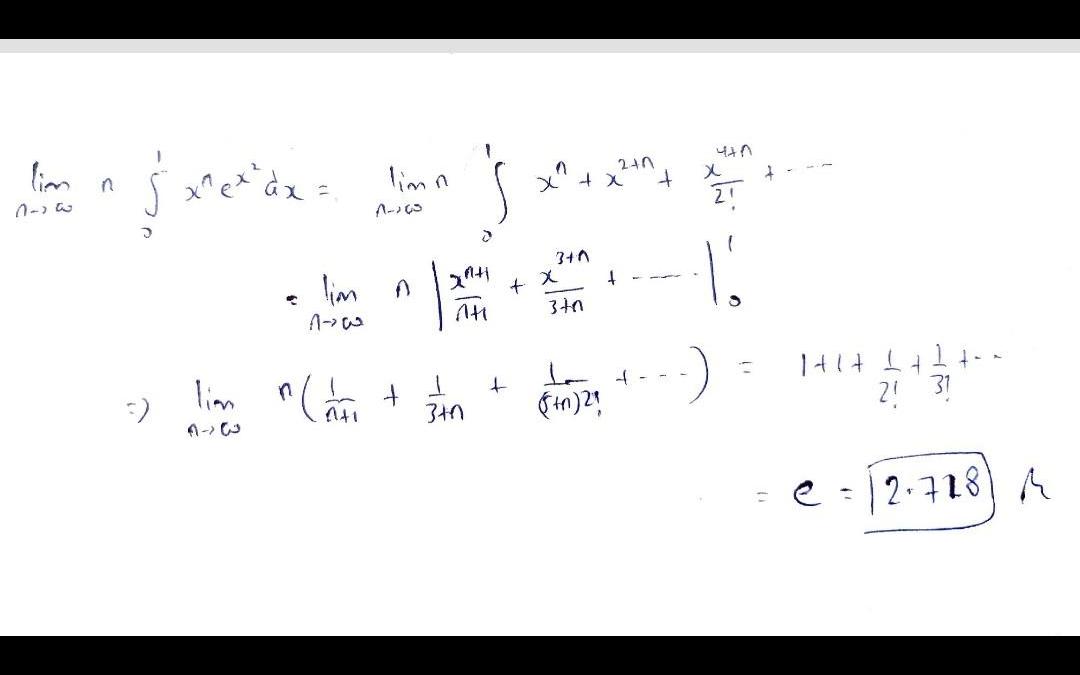 lim n→∞ n ∫₀¹ xⁿ e^(x²) dx = lim n→∞ n ∫₀¹ xⁿ + x^(2+n) + x^(4+n)/2! + ----
= lim n→∞ n | x^(n+1)/(n+1) + x^(3+n)/(3+n) + ----- |₀¹
=) lim n→∞ n( 1/(n+1) + 1/(3+n) + 1/((5+n)2!) + ---- ) = 1+1+ 1/2! + 1/3! + --
= e = 2.718